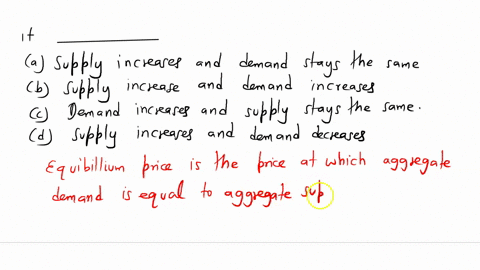 if __________
(a) Supply increases and demand stays the same
(b) Supply increase and demand increases
(c) Demand increases and supply stays the same.
(d) Supply increases and demand decreases
Equibillium price is the price at which aggregate
demand is equal to aggregate sup